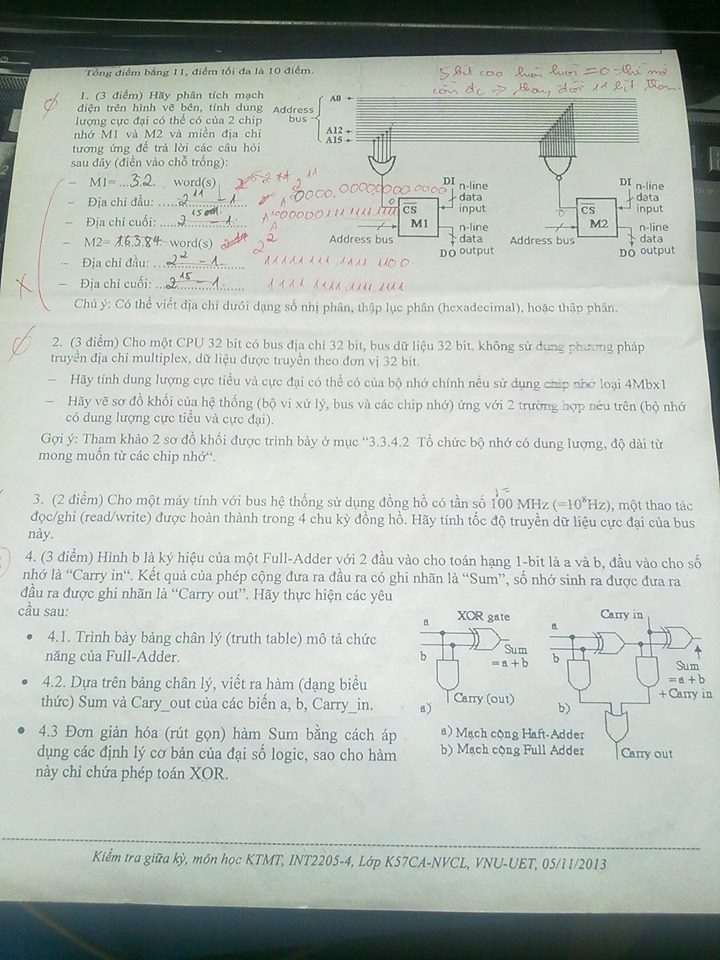 Tổng điểm bằng 11, điểm tối đa là 10 điểm.
5 bit cao luôn luôn = 0 thì mở
còn đc → thay đổi 11 bit thôi
1. (3 điểm) Hãy phân tích mạch
điện trên hình vẽ bên, tính dung
lượng cực đại có thể có của 2 chip
nhớ M1 và M2 và miền địa chỉ
tương ứng để trả lời các câu hỏi
sau đây (điền vào chỗ trống):
Address
bus
A0
A12
A15
– M1= ...32... word(s) 2^11
– Địa chỉ đầu: ...2^11 – 1...
– Địa chỉ cuối: ...2^15 – 1...
– M2= 16384 word(s) 2^2
– Địa chỉ đầu: ...2^2 – 1...
– Địa chỉ cuối: ...2^15 – 1...
CS
M1
DI
n-line
data
input
n-line
data
DO output
Address bus
CS
M2
DI
n-line
data
input
n-line
data
DO output
Address bus
Chú ý: Có thể viết địa chỉ dưới dạng số nhị phân, thập lục phân (hexadecimal), hoặc thập phân.
2. (3 điểm) Cho một CPU 32 bit có bus địa chỉ 32 bit, bus dữ liệu 32 bit. không sử dụng phương pháp
truyền địa chỉ multiplex, dữ liệu được truyền theo đơn vị 32 bit.
– Hãy tính dung lượng cực tiểu và cực đại có thể có của bộ nhớ chính nếu sử dụng chip nhớ loại 4Mbx1
– Hãy vẽ sơ đồ khối của hệ thống (bộ vi xử lý, bus và các chip nhớ) ứng với 2 trường hợp nêu trên (bộ nhớ
có dung lượng cực tiểu và cực đại).
Gợi ý: Tham khảo 2 sơ đồ khối được trình bày ở mục “3.3.4.2 Tổ chức bộ nhớ có dung lượng, độ dài từ
mong muốn từ các chip nhớ“.
3. (2 điểm) Cho một máy tính với bus hệ thống sử dụng đồng hồ có tần số 100 MHz (=10^8Hz), một thao tác
đọc/ghi (read/write) được hoàn thành trong 4 chu kỳ đồng hồ. Hãy tính tốc độ truyền dữ liệu cực đại của bus
này.
4. (3 điểm) Hình b là ký hiệu của một Full-Adder với 2 đầu vào cho toán hạng 1-bit là a và b, đầu vào cho số
nhớ là “Carry in“. Kết quả của phép cộng đưa ra đầu ra có ghi nhãn là “Sum”, số nhớ sinh ra được đưa ra
đầu ra được ghi nhãn là “Carry out”. Hãy thực hiện các yêu
cầu sau:
• 4.1. Trình bày bảng chân lý (truth table) mô tả chức
năng của Full-Adder.
• 4.2. Dựa trên bảng chân lý, viết ra hàm (dạng biểu
thức) Sum và Cary_out của các biến a, b, Carry_in.
• 4.3 Đơn giản hóa (rút gọn) hàm Sum bằng cách áp
dụng các định lý cơ bản của đại số logic, sao cho hàm
này chỉ chứa phép toán XOR.
XOR gate
a
b
Sum
= a + b
Carry (out)
a)
Carry in
a
b
Sum
= a + b
+ Carry in
b)
Carry out
a) Mạch cộng Haft-Adder
b) Mạch cộng Full Adder
Kiểm tra giữa kỳ, môn học KTMT, INT2205-4, Lớp K57CA-NVCL, VNU-UET, 05/11/2013